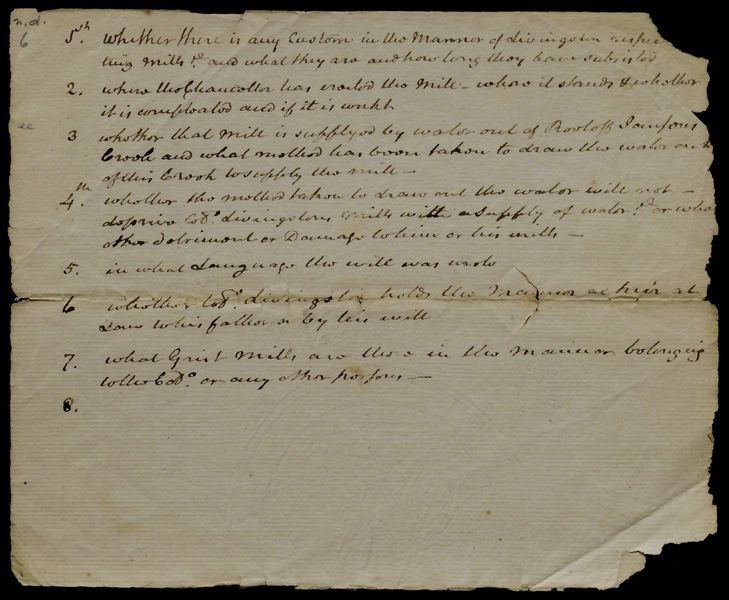 n.d.
6
1st. whether there is any Custom in the Mannor of Livingston respec
ting Mills &c and what they are and how long they have subsisted
2. where the Chancellor has erected the Mill - where it stands & whether
it is compleated and if it is work't
3 whether that Mill is supplyed by water out of Roeloff Jansons
Creek and what method has been taken to draw the water out
of this Creek to supply the mill —
4th. whether the method taken to draw out the water will not —
deprive Col.o Livingstons Mills with a supply of water &c or what
other Detriment or Damage to him or his mills —
5. in what Language the will was wrote
6 whether Col.o Livingston holds the Mannor as heir at
Law to his father or by his will
7. what Grist Mills are there in the Mannor belonging
to the Col.o or any other persons —
8.